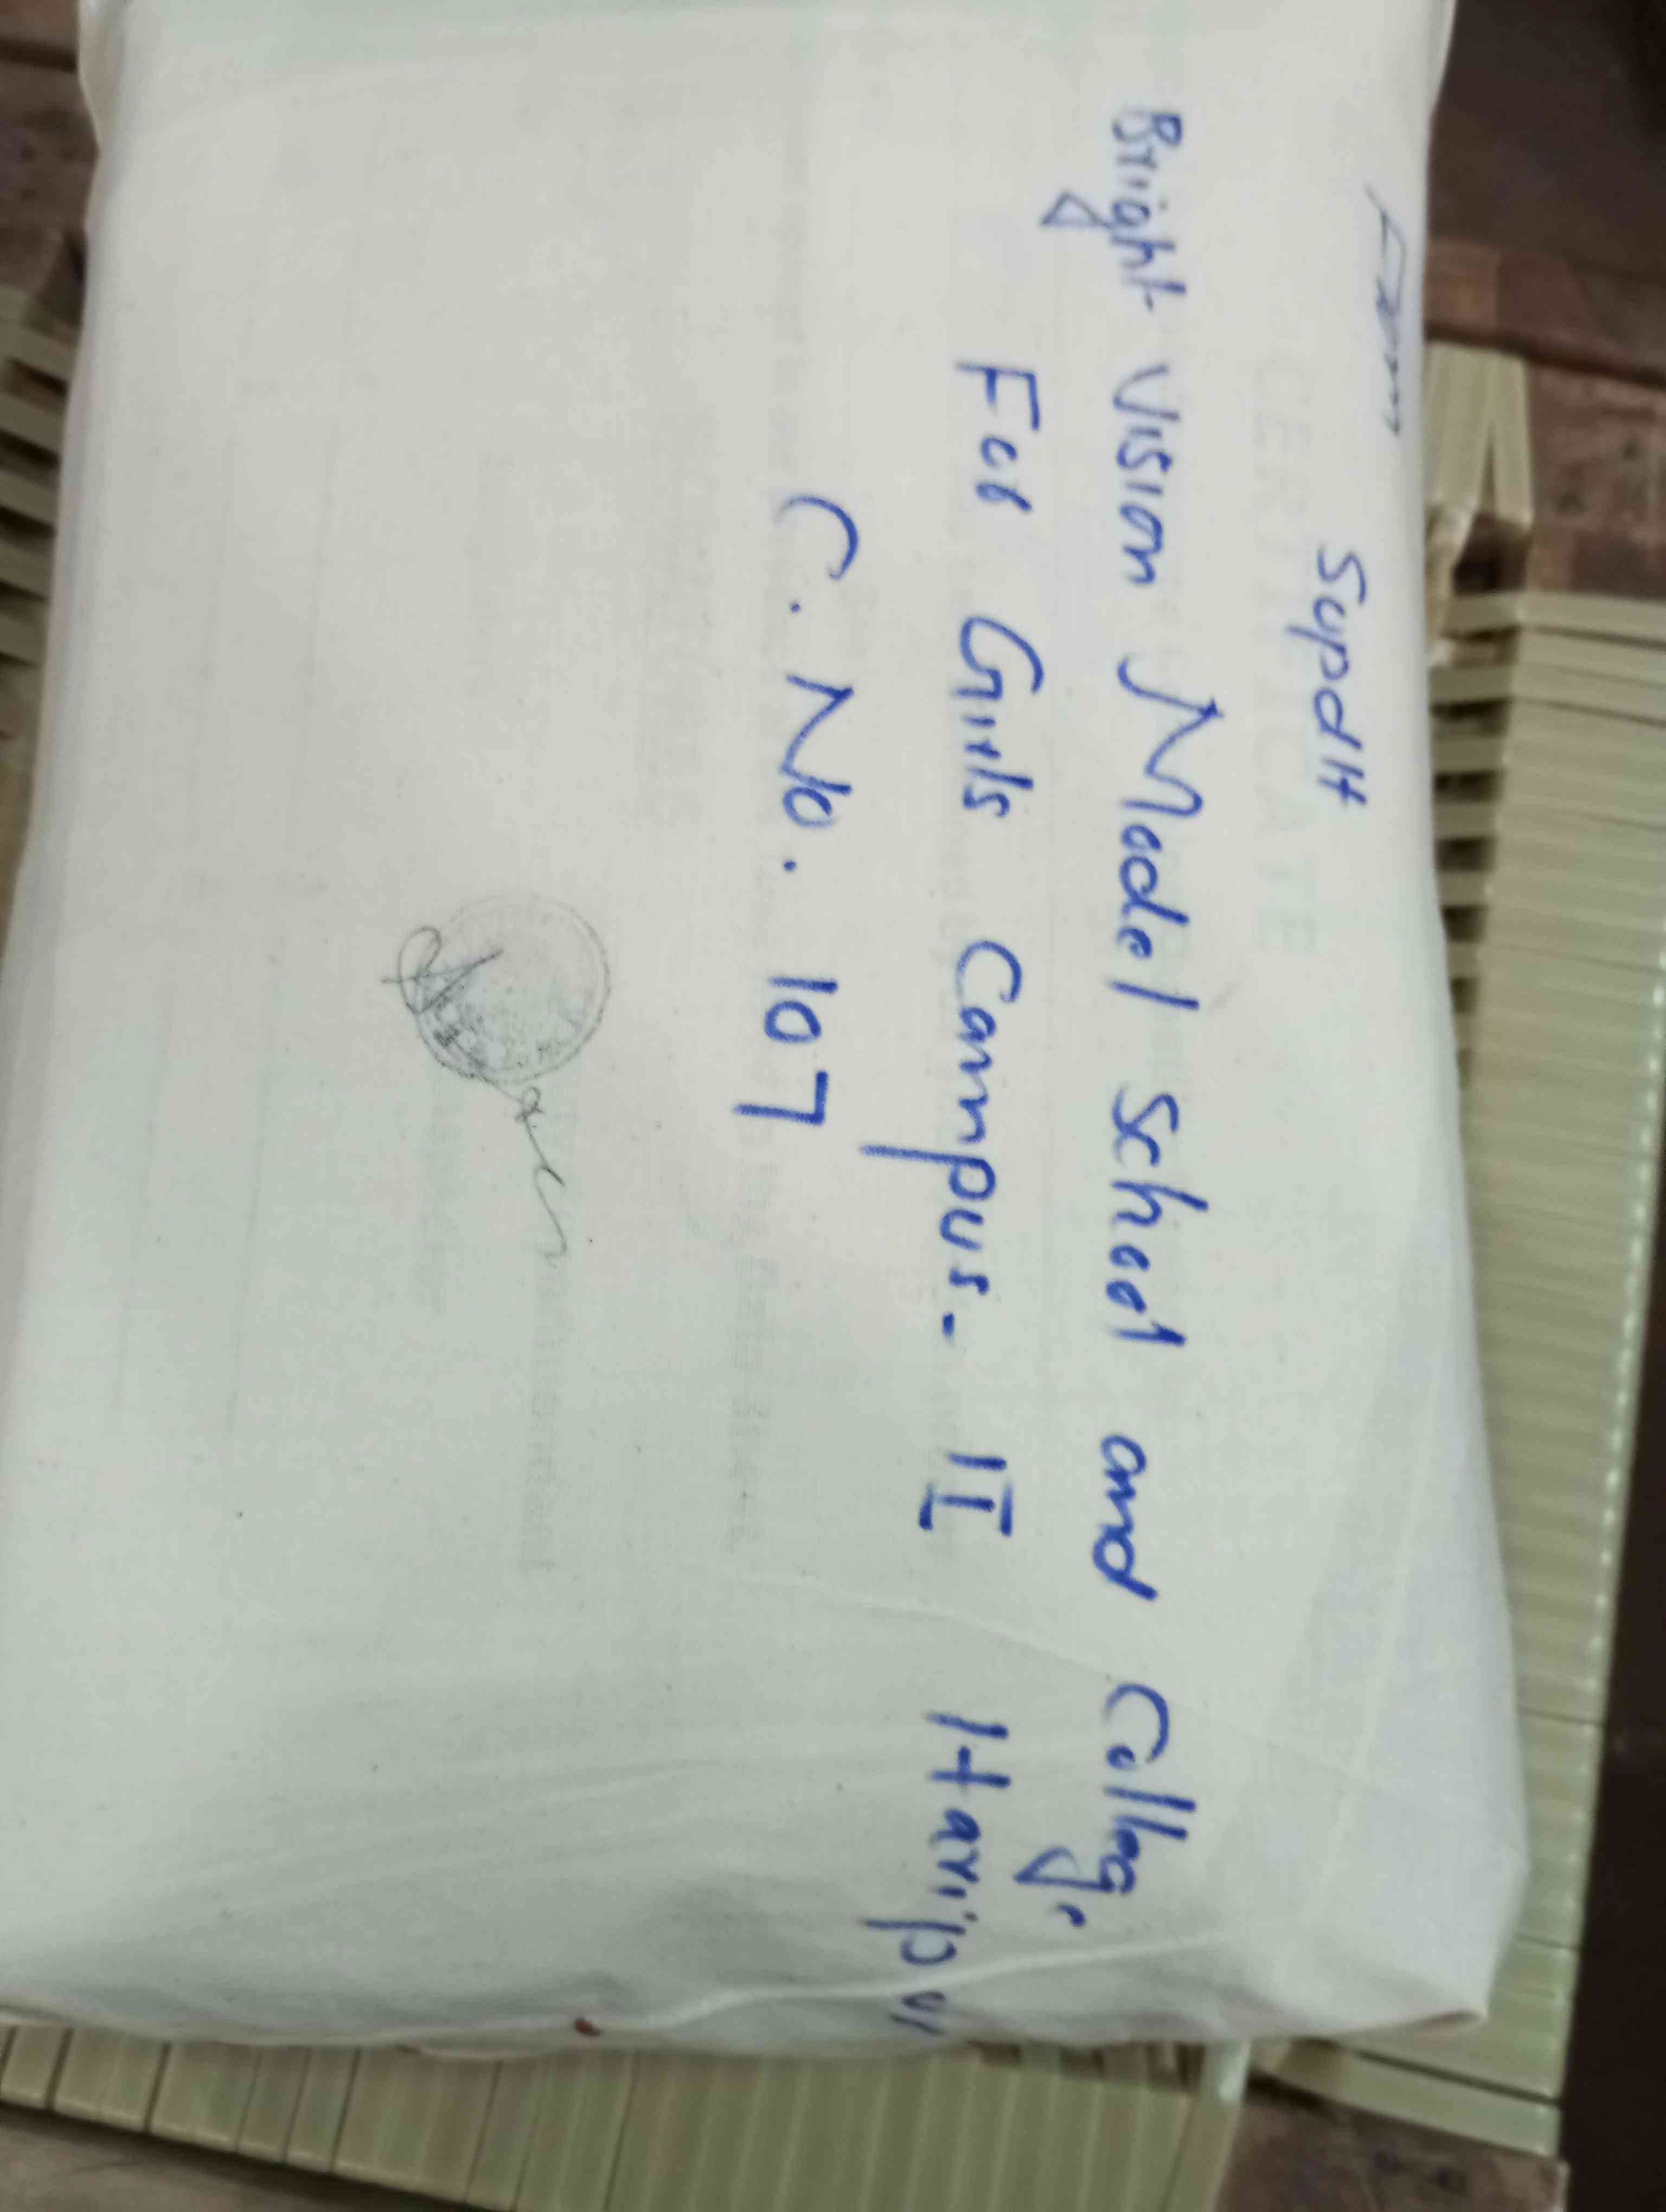 From
Supdtt
Bright Vision Model School and College
For Girls Campus- II Haripur
C. No. 107